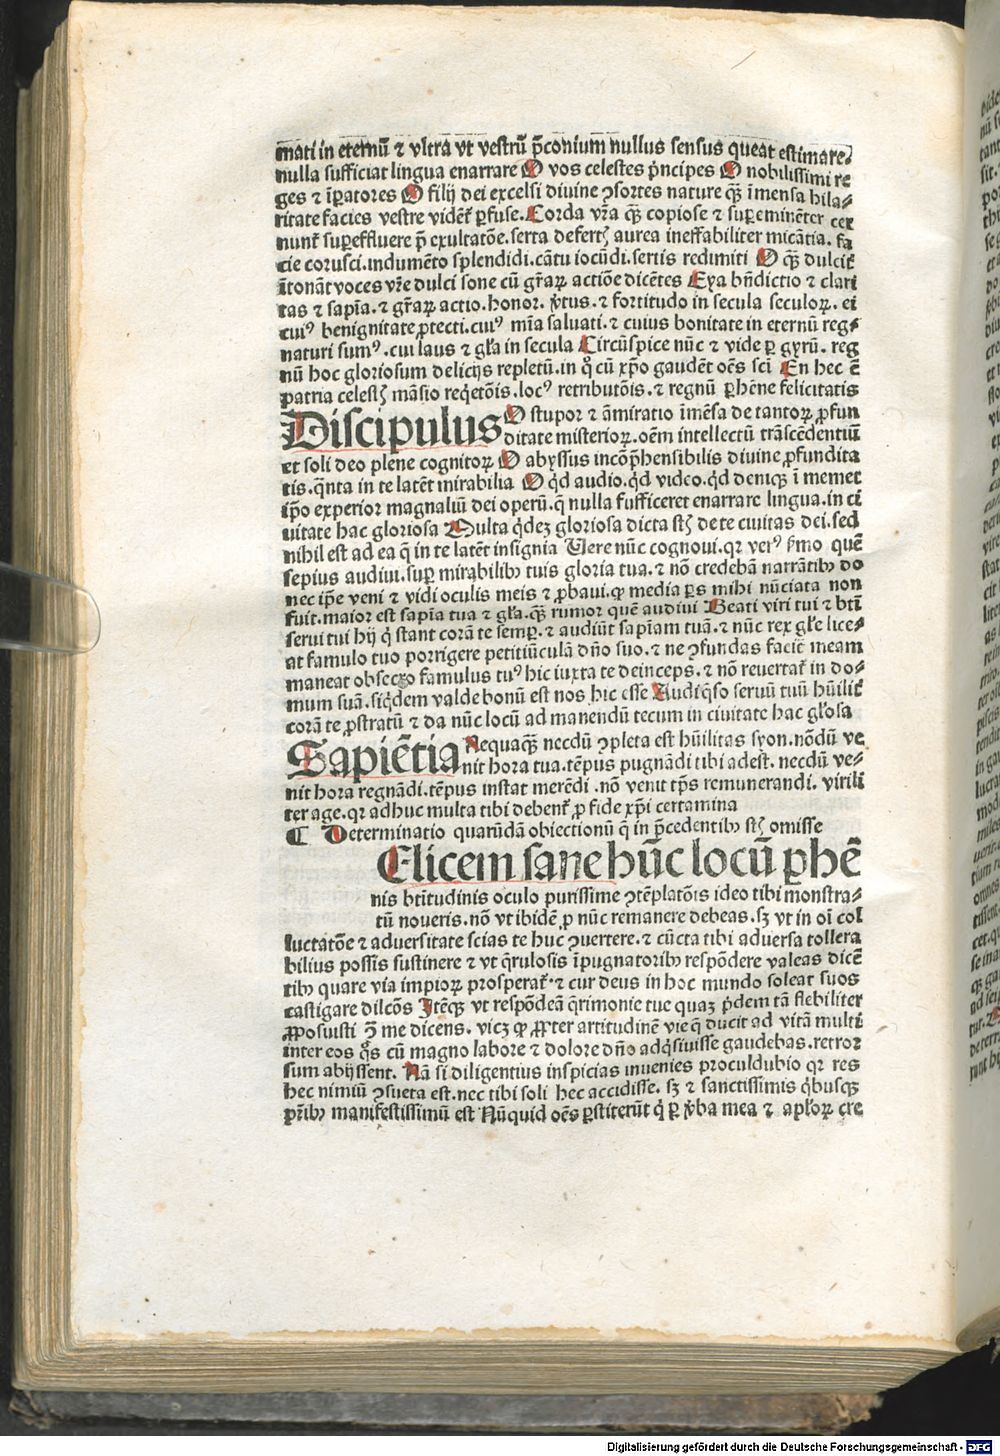 mati in eternū ⁊ vltra vt vestrū p̄conium nullus sensus queat estimare.
nulla sufficiat lingua enarrare O vos celestes p̓ncipes O nobilissimi re
ges ⁊ īꝑatores O filij dei excelsi diuine ꝯsortes nature qꝫ īmensa hila-
ritate facies vestre vident̄ ꝑfuse. Corda vr̄a qꝫ copiose ⁊ suꝑeminēter cer
nunt̄ suꝑeffluere p̄ exultatōe. serta defertꝭ aurea ineffabiliter micātia. fa
cie corusci. indumēto splendidi. cātu iocūdi. sertis redimiti O qꝫ dulcit̄
ītonāt voces vr̄e dulci sone cū gr̄aꝝ actiōe dicētes Eya bn̄dictio ⁊ clari
tas ⁊ sapīa. ⁊ gr̄aꝝ actio. honor. v̓tus. ⁊ fortitudo in secula seculoꝝ. ei
cuiꝰ benignitate ꝓtecti. cuiꝰ mīa saluati. ⁊ cuius bonitate in eternū reg-
naturi sumꝰ. cui laus ⁊ gl̄a in secula Circūspice nūc ⁊ vide ꝑ gyrū. reg
nū hoc gloriosum delicijs repletū. in q̊ cū xp̄o gaudēt oēs sc̄i En hec ē
patria celestꝭ māsio req̓etōis. locꝰ retributōis. ⁊ regnū ꝑhēne felicitatis
Discipulus O stupor ⁊ āmiratio īmēsa de tantoꝝ ꝓfun
ditate misterioꝝ. oēm intellectū trāscēdentiū
et soli deo plene cognitoꝝ O abyssus incōp̄hensibilis diuine ꝓfundita
tis. q̄nta in te latēt mirabilia O q̓d audio. q̓d video. q̓d deniqꝫ ī memet
ip̄o experior magnaliū dei operū. q̄ nulla sufficeret enarrare lingua. in ci
uitate hac gloriosa Multa q̓dez gloriosa dicta stꝭ de te ciuitas dei. sed
nihil est ad ea q̄ in te latēt insignia Uere nūc cognoui. qꝛ verꝰ s̓mo quē
sepius audiui. suꝑ mirabilibꝫ tuis gloria tua. ⁊ nō credebā narrātibꝫ do
nec ip̄e veni ⁊ vidi oculis meis ⁊ ꝓbaui. ꝙ media ꝑs mihi nūciata non
fuit. maior est sapīa tua ⁊ gl̄a. qꝫ rumor quē audiui Beati viri tui ⁊ bt̄i
serui tui hij q̓ stant corā te semꝑ. ⁊ audiūt sapīam tuā. ⁊ nūc rex gl̄e lice-
at famulo tuo porrigere petitiūculā dn̄o suo. ⁊ ne ꝯfundas faciē meam
maneat obsecro famulus tuꝰ hic iuxta te deinceps. ⁊ nō reuertat̄ in do-
mum suā. siq̓dem valde bonū est nos hic esse Audi q̄so seruū tuū hūilit̄
corā te ꝓstratū ⁊ da nūc locū ad manendū tecum in ciuitate hac gl̄osa
Sapiētia Nequaqꝫ necdū ꝯpleta est hūilitas syon. nōdū ve
nit hora tua. tēpus pugnādi tibi adest. necdū ve-
nit hora regnādi. tēpus instat merēdi. nō venit tp̄s remunerandi. virili
ter age. qꝛ adhuc multa tibi debent̄ ꝓ fide xp̄i certamina
¶ Determinatio quarūdā obiectionū q̄ in p̄cedentibꝫ stꝭ omisse
Elicem sane hūc locū ꝑhē
nis btītudinis oculo purissime ꝯtēplatōis ideo tibi monstra-
tū noueris. nō vt ibidē ꝓ nūc remanere debeas. sꝫ vt in oī col
luctatōe ⁊ aduersitate scias te huc ꝯuertere. ⁊ cūcta tibi aduersa tollera
bilius possis sustinere ⁊ vt q̄rulosis īpugnatoribꝫ respōdere valeas dicē
tibꝫ quare via impioꝝ prosperat̄ ⁊ cur deus in hoc mundo soleat suos
castigare dilc̄os Itēqꝫ vt respōdeā q̄rimonie tue quaꝫ p̓dem tā flebiliter
ꝓposuisti ꝯ̄ me dicens. vicꝫ ꝙ ꝓpter artitudinē vie q̄ ducit ad vitā multi
inter eos q̊s cū magno labore ⁊ dolore dn̄o adq̓siuisse gaudebas. retror
sum abijssent. Nā si diligentius inspicias inuenies proculdubio qꝛ res
hec nimiū ꝯsueta est. nec tibi soli hec accidisse. sꝫ ⁊ sanctissimis q̓busqꝫ
pr̄ibꝫ manifestissimū est Nūquid oēs ꝑstiterūt q̓ ꝑ v̓ba mea ⁊ apl̄oꝝ cre
Digitalisierung gefördert durch die Deutsche Forschungsgemeinschaft - DFG